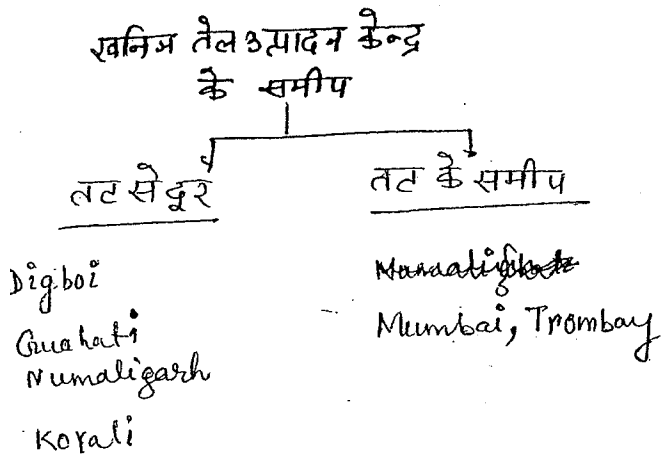 खनिज तेल उत्पादन केन्द्र
के समीप
तट से दूर
तट के समीप
Digboi
Guahati
Numaligarh
Koyali
Mumbai, Trombay